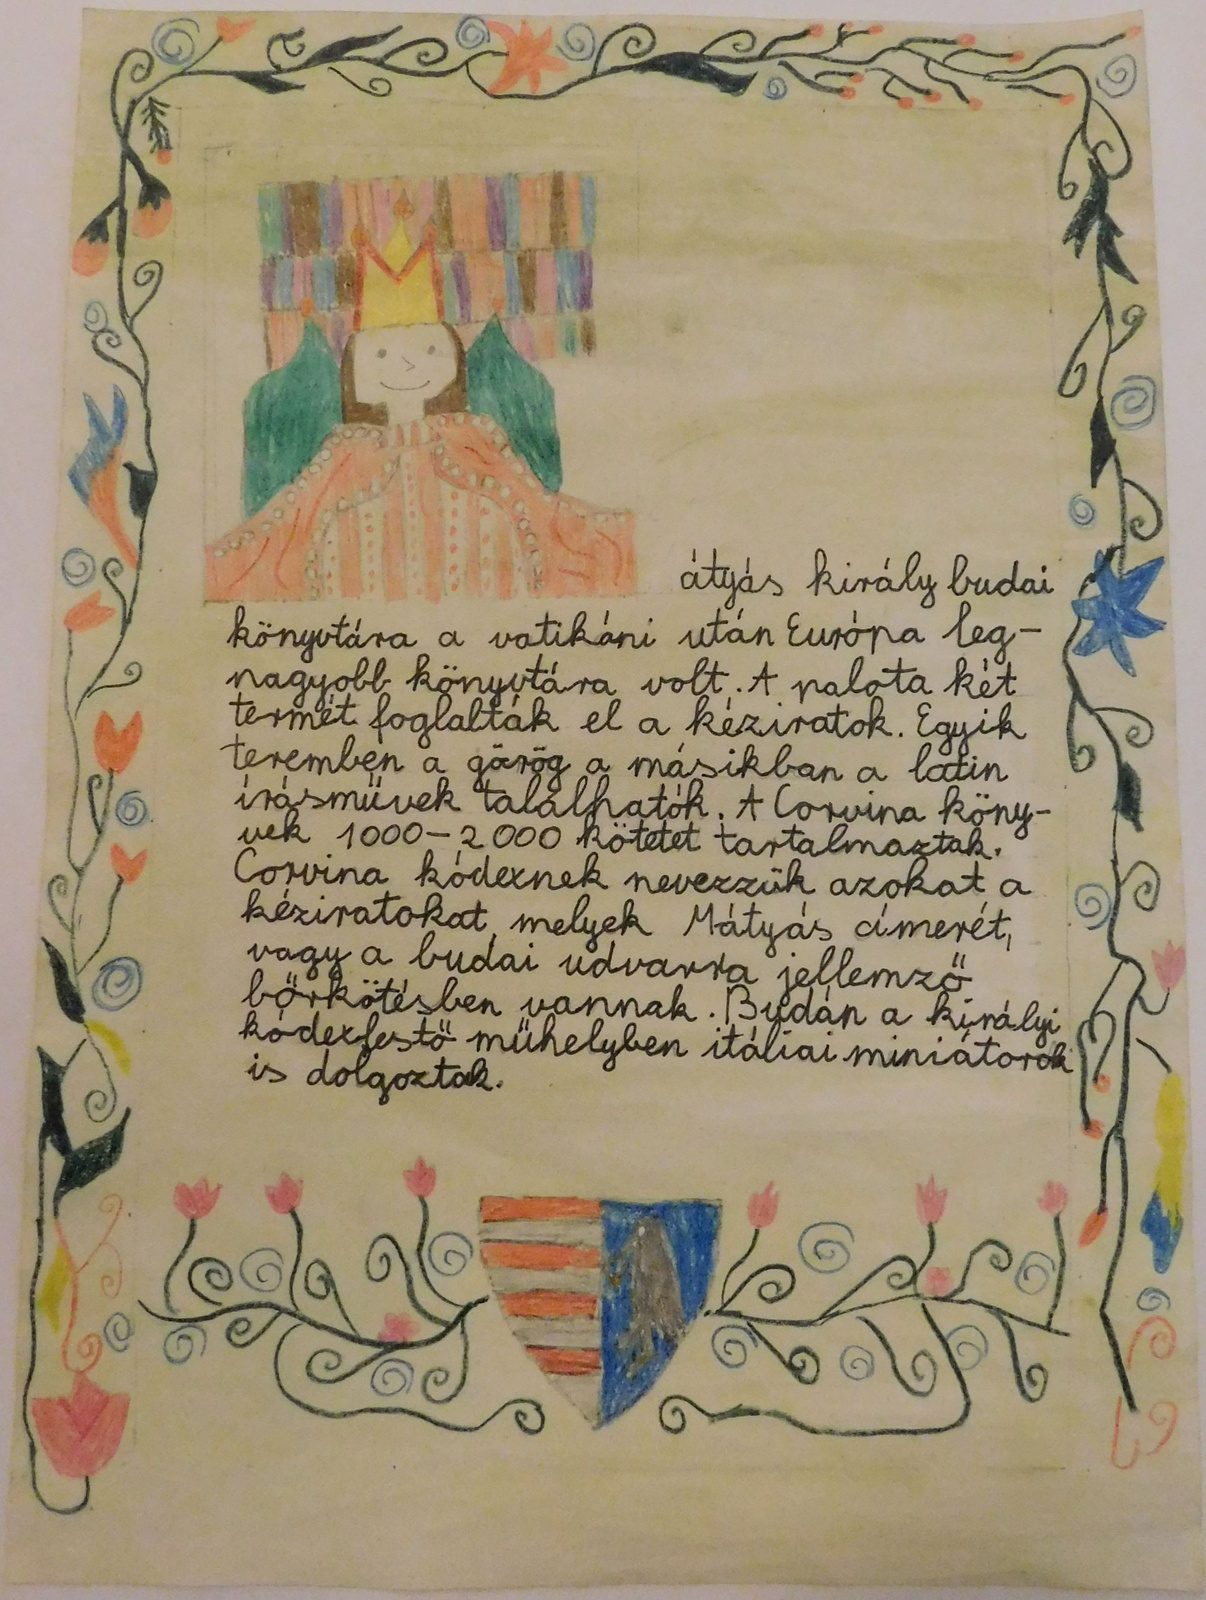 átyás király budai
könyvtára a vatikáni után Európa leg-
nagyobb könyvtára volt. A palota két
termét foglalták el a kéziratok. Egyik
teremben a görög a másikban a latin
írásművek találhatók. A Corvina köny-
vek 1000-2000 kötetet tartalmaztak.
Corvina kódexnek nevezzük azokat a
kéziratokat, melyek Mátyás címerét,
vagy a budai udvarra jellemző
bőrkötésben vannak. Budán a királyi
kódexfestő műhelyben itáliai miniátorok
is dolgoztak.